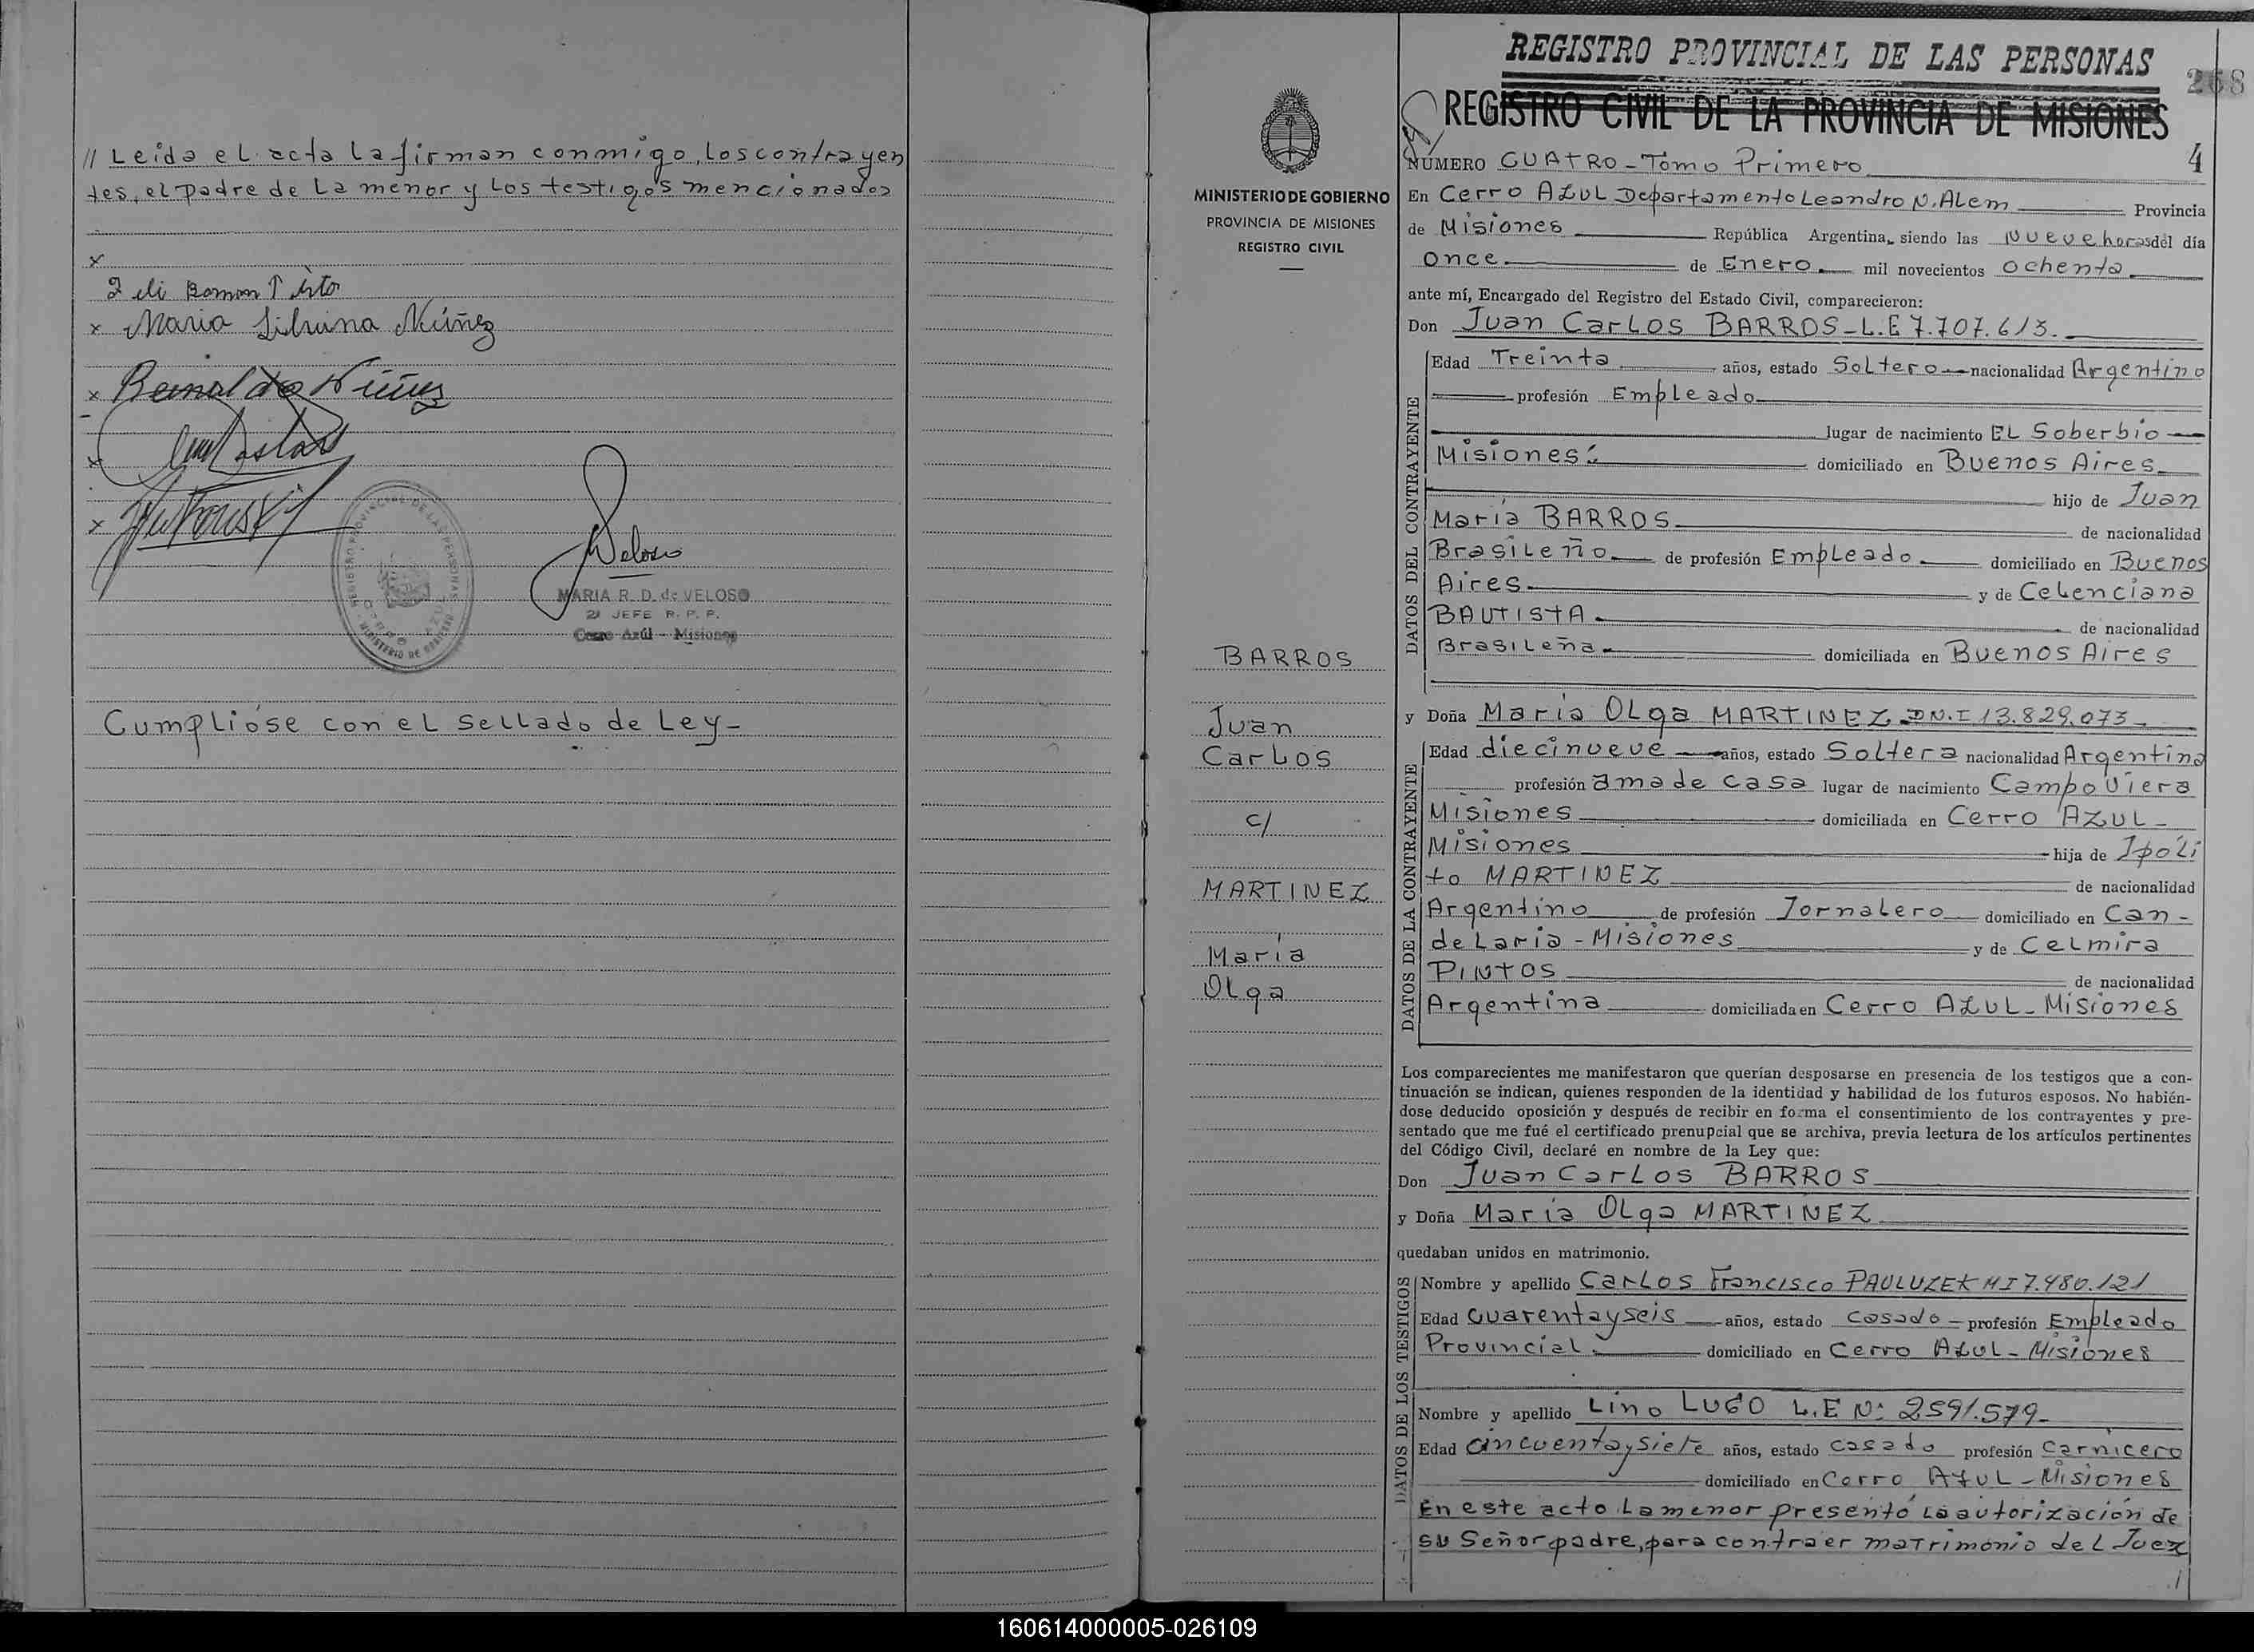 // Leida el acta la firman conmigo, los contrayen
tes, el padre de la menor y los testigos mencionados
x
x Maria Núñez
x Núñez
x
x
Veloso
MARIA R. D. de VELOSO
JEFE R. P. P.
Cerro Azúl - Misiones
Cumplióse con el sellado de Ley-
MINISTERIO DE GOBIERNO
PROVINCIA DE MISIONES
REGISTRO CIVIL
BARROS
Juan
Carlos
c/
MARTINEZ
Maria
Olga
REGISTRO PROVINCIAL DE LAS PERSONAS
268
REGISTRO CIVIL DE LA PROVINCIA DE MISIONES
4
NÚMERO CUATRO - Tomo Primero
En Cerro Azul Departamento Leandro N. Alem Provincia
de Misiones República Argentina, siendo las nueve horas del día
once de Enero mil novecientos ochenta
ante mí, Encargado del Registro del Estado Civil, comparecieron:
Don Juan Carlos BARROS - L.E 7.707.613.
DATOS DEL CONTRAYENTE
Edad Treinta años, estado Soltero nacionalidad Argentino
profesión Empleado
lugar de nacimiento EL Soberbio
Misiones domiciliado en Buenos Aires
hijo de Juan
Maria BARROS de nacionalidad
Brasileño de profesión Empleado domiciliado en Buenos
Aires y de Celenciana
BAUTISTA de nacionalidad
Brasileña domiciliada en Buenos Aires
y Doña Maria Olga MARTINEZ D.N.I 13.829.073
DATOS DE LA CONTRAYENTE
Edad diecinueve años, estado Soltera nacionalidad Argentina
profesión ama de casa lugar de nacimiento Campo Viera
Misiones domiciliada en Cerro Azul -
Misiones hija de Ipóli
to MARTINEZ de nacionalidad
Argentino de profesión Jornalero domiciliado en Can-
delaria - Misiones y de Celmira
PINTOS de nacionalidad
Argentina domiciliada en Cerro Azul - Misiones
Los comparecientes me manifestaron que querían desposarse en presencia de los testigos que a con-
tinuación se indican, quienes responden de la identidad y habilidad de los futuros esposos. No habién-
dose deducido oposición y después de recibir en forma el consentimiento de los contrayentes y pre-
sentado que me fué el certificado prenupcial que se archiva, previa lectura de los artículos pertinentes
del Código Civil, declaré en nombre de la Ley que:
Don Juan Carlos BARROS
y Doña Maria Olga MARTINEZ
quedaban unidos en matrimonio.
DATOS DE LOS TESTIGOS
Nombre y apellido Carlos Francisco PAULUZEK MI 7.480.121
Edad Cuarentayseis años, estado casado profesión Empleado
Provincial domiciliado en Cerro Azul - Misiones
Nombre y apellido Lino LUGO L.E Nº 2591.579-
Edad cincuentaysiete años, estado casado profesión carnicero
domiciliado en Cerro Azul - Misiones
En este acto la menor presentó la autorización de
su Señor padre, para contraer matrimonio del Juez
/
160614000005-026109